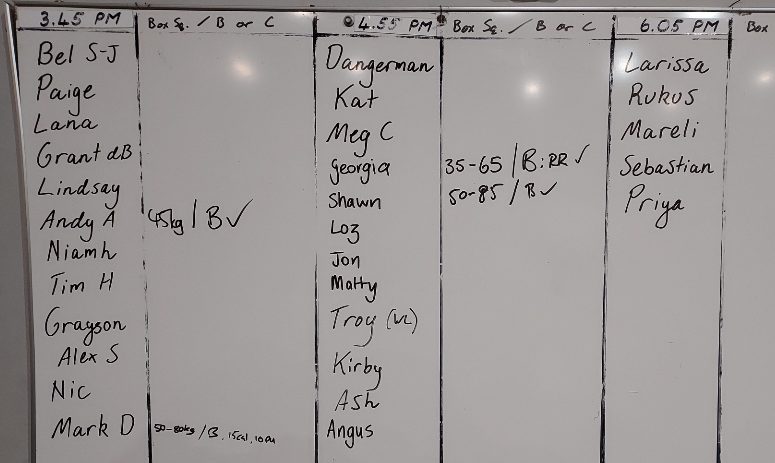 3.45 PM Box Sq. / B or C 4.55 PM Box Sq. / B or C 6.05 PM Box
Bel S-J Dangerman Larissa
Paige Kat Rukus
Lana Meg C Mareli
Grant dB Georgia 35-65 / B: RR ✓ Sebastian
Lindsay Shawn 50-85 / B ✓ Priya
Andy A 45kg / B ✓ Loz
Niamh Jon
Tim H Matty
Grayson Troy
Alex S Kirby
Nic Ash
Mark D 50-80kg / B, 15cal, Angus